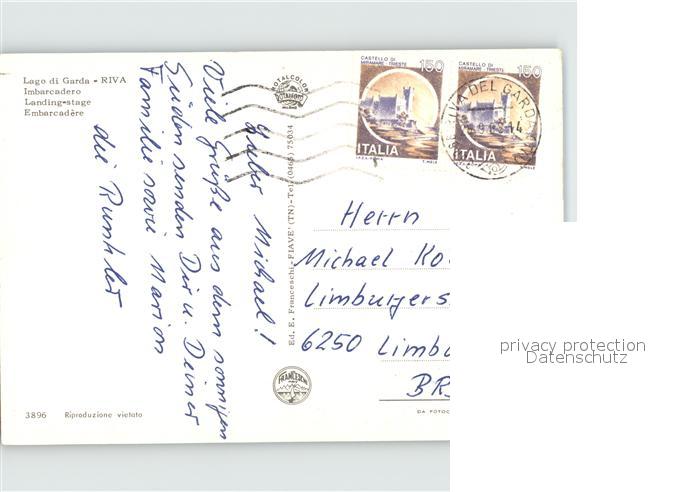 Lago di Garda - RIVA
Imbarcadero
Landing-stage
Embarcadère
Lieber Michael!
Viele Grüße aus dem sonnigen
Süden senden Dir u. Deiner
Familie sowie Marion
die
TOTALCOLOR
Ed. E. Franceschi - FIAVE' (TN) - Tel. (0465) 75034
FRANCESCHI
CASTELLO DI
MIRAMARE - TRIESTE
150
ITALIA
CASTELLO DI
MIRAMARE - TRIESTE
150
ITALIA
RIVA DEL GARDA
Herrn
Michael Ko
Limburgers
6250 Limbu
BR
3896 Riproduzione vietato
DA FOTOC
privacy protection
Datenschutz